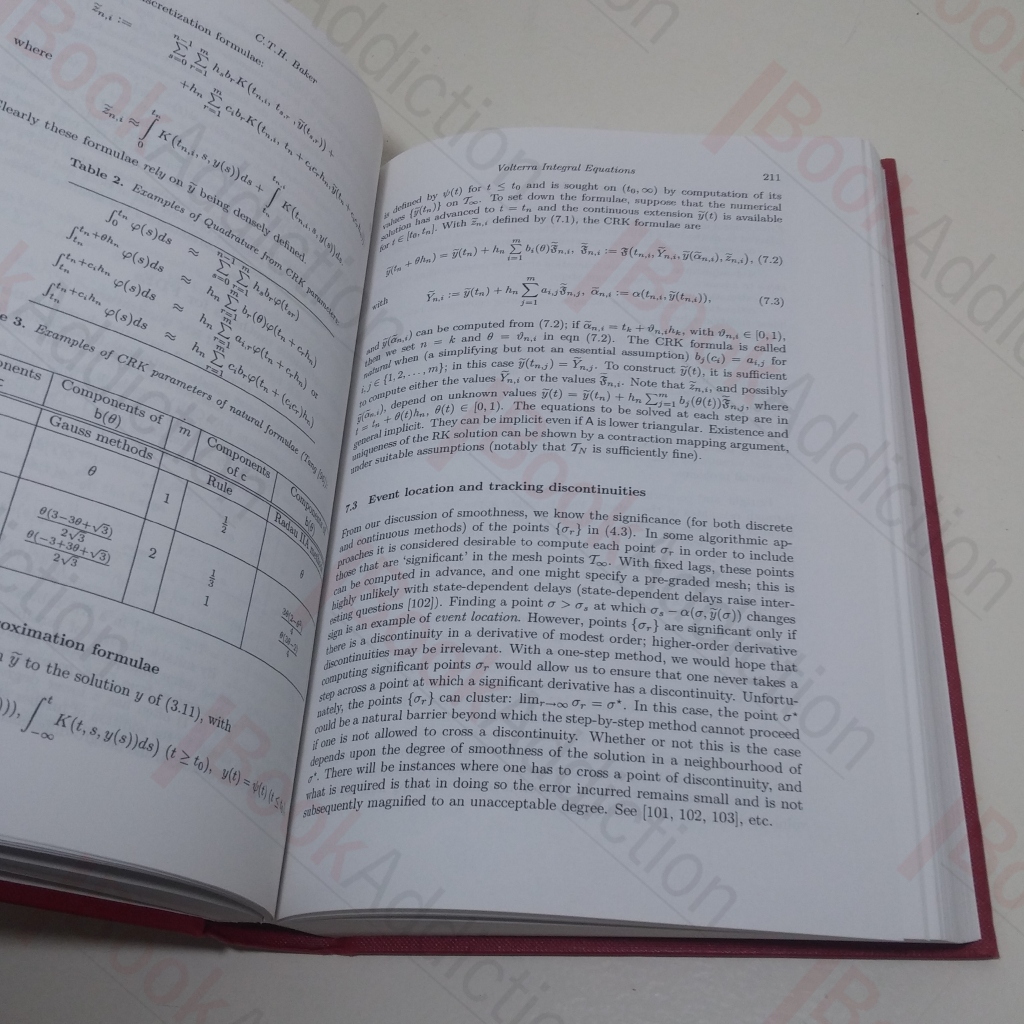 discretization formulae:
C.T.H. Baker
z̃_{n,i} := ∑_{s=0}^{n−1} ∑_{r=1}^{m} h_s b_r K(t_{n,i}, t_{s,r}, ỹ(t_{s,r})) +
+h_n ∑_{r=1}^{m} c_i b_r K(t_{n,i}, t_n + c_i c_r h_n, ỹ(t_n + c_i c_r h_n))
where
z̃_{n,i} ≈ ∫_0^{t_n} K(t_{n,i}, s, y(s))ds + ∫_{t_n}^{t_{n,i}} K(t_{n,i}, s, y(s))ds.
Clearly these formulae rely on ỹ being densely defined.
Table 2. Examples of Quadrature from CRK parameters
∫_0^{t_n} φ(s)ds ≈ ∑_{s=0}^{n−1} ∑_{r=1}^{m} h_s b_r φ(t_{sr})
∫_{t_n}^{t_n+θh_n} φ(s)ds ≈ h_n ∑_{r=1}^{m} b_r(θ)φ(t_n + c_r h_n)
∫_{t_n}^{t_n+c_i h_n} φ(s)ds ≈ h_n ∑_{r=1}^{m} a_{i,r} φ(t_n + c_r h_n) or
∫_{t_n}^{t_n+c_i h_n} φ(s)ds ≈ h_n ∑_{r=1}^{m} c_i b_r φ(t_n + (c_i c_r)h_n)
3. Examples of CRK parameters of natural formulae
Components of b(θ) m Components of c
Gauss methods Rule Radau IIA
θ 1 1/2 θ
θ(3−3θ+√3)/2√3
θ(−3+3θ+√3)/2√3
2 1/3
1
approximation formulae
ỹ to the solution y of (3.11), with
))), ∫_{−∞}^{t} K(t, s, y(s))ds) (t ≥ t_0), y(t) = ψ(t)
Volterra Integral Equations 211
is defined by ψ(t) for t ≤ t_0 and is sought on (t_0, ∞) by computation of its
values {ỹ(t_n)} on T_∞. To set down the formulae, suppose that the numerical
solution has advanced to t = t_n and the continuous extension ỹ(t) is available
for t ∈ [t_0, t_n]. With z̃_{n,i} defined by (7.1), the CRK formulae are
ỹ(t_n + θh_n) = ỹ(t_n) + h_n ∑_{i=1}^{m} b_i(θ)𝔉̃_{n,i}, 𝔉̃_{n,i} := 𝔉(t_{n,i}, Ỹ_{n,i}, ỹ(α̃_{n,i}), z̃_{n,i}), (7.2)
with Ỹ_{n,i} := ỹ(t_n) + h_n ∑_{j=1}^{m} a_{i,j}𝔉̃_{n,j}, α̃_{n,i} := α(t_{n,i}, ỹ(t_{n,i})), (7.3)
and ỹ(α̃_{n,i}) can be computed from (7.2); if α̃_{n,i} = t_k + ϑ_{n,i}h_k, with ϑ_{n,i} ∈ [0, 1),
then we set n = k and θ = ϑ_{n,i} in eqn (7.2). The CRK formula is called
natural when (a simplifying but not an essential assumption) b_j(c_i) = a_{i,j} for
i, j ∈ {1, 2, . . . , m}; in this case ỹ(t_{n,j}) = Ỹ_{n,j}. To construct ỹ(t), it is sufficient
to compute either the values Ỹ_{n,i} or the values 𝔉̃_{n,i}. Note that z̃_{n,i}, and possibly
ỹ(α̃_{n,i}), depend on unknown values ỹ(t) = ỹ(t_n) + h_n ∑_{j=1}^{m} b_j(θ(t))𝔉̃_{n,j}, where
t = t_n + θ(t)h_n, θ(t) ∈ [0, 1). The equations to be solved at each step are in
general implicit. They can be implicit even if A is lower triangular. Existence and
uniqueness of the RK solution can be shown by a contraction mapping argument,
under suitable assumptions (notably that T_N is sufficiently fine).
7.3 Event location and tracking discontinuities
From our discussion of smoothness, we know the significance (for both discrete
and continuous methods) of the points {σ_r} in (4.3). In some algorithmic ap-
proaches it is considered desirable to compute each point σ_r in order to include
those that are ‘significant’ in the mesh points T_∞. With fixed lags, these points
can be computed in advance, and one might specify a pre-graded mesh; this is
highly unlikely with state-dependent delays (state-dependent delays raise inter-
esting questions [102]). Finding a point σ > σ_s at which σ_s − α(σ, ỹ(σ)) changes
sign is an example of event location. However, points {σ_r} are significant only if
there is a discontinuity in a derivative of modest order; higher-order derivative
discontinuities may be irrelevant. With a one-step method, we would hope that
computing significant points σ_r would allow us to ensure that one never takes a
step across a point at which a significant derivative has a discontinuity. Unfortu-
nately, the points {σ_r} can cluster: lim_{r→∞} σ_r = σ*. In this case, the point σ*
could be a natural barrier beyond which the step-by-step method cannot proceed
if one is not allowed to cross a discontinuity. Whether or not this is the case
depends upon the degree of smoothness of the solution in a neighbourhood of
σ*. There will be instances where one has to cross a point of discontinuity, and
what is required is that in doing so the error incurred remains small and is not
subsequently magnified to an unacceptable degree. See [101, 102, 103], etc.
BookAddiction